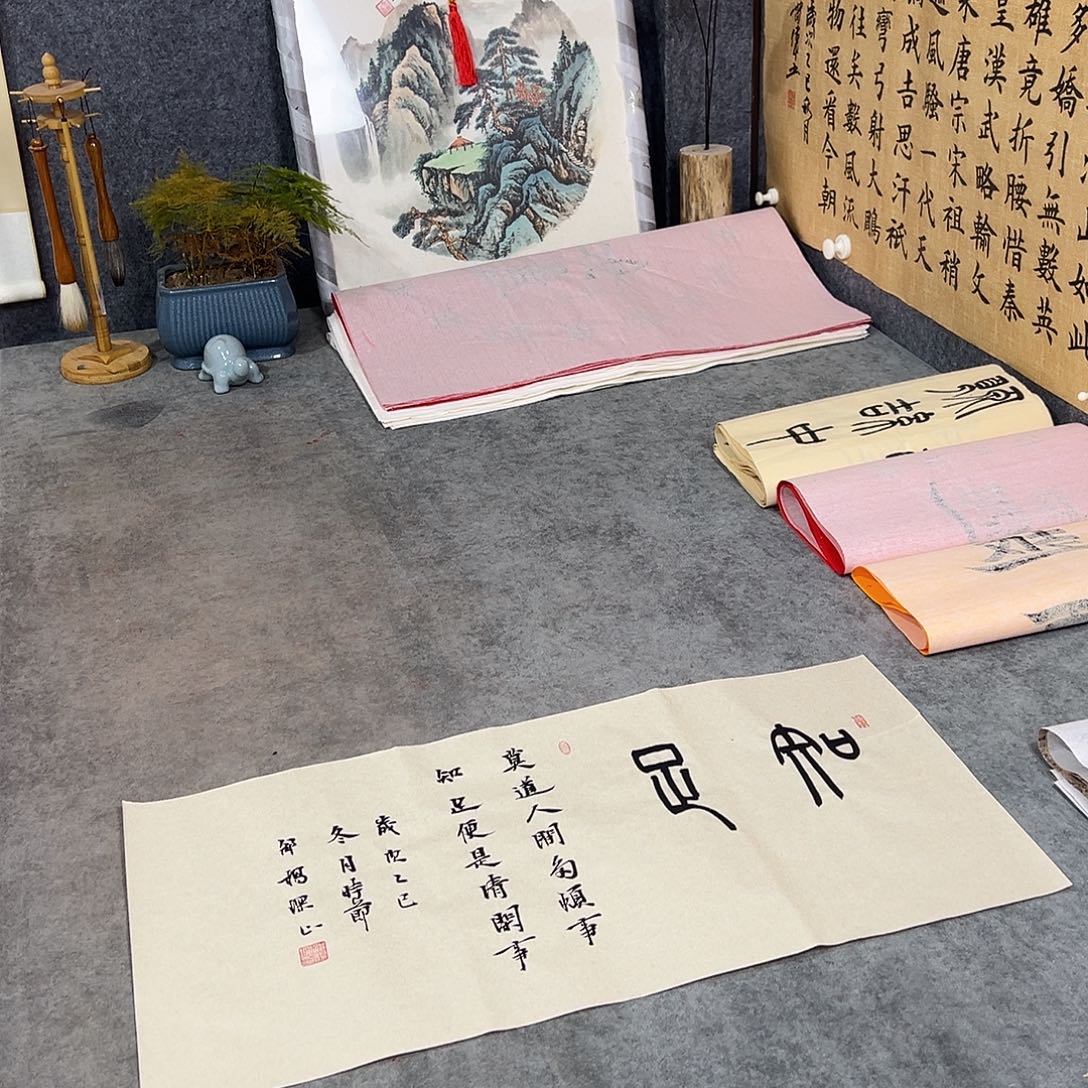 山如此
多嬌引無數英
雄竟折腰惜秦
皇漢武略輸文
采唐宗宋祖稍
風騷一代天
成吉思汗祗
彎弓射大鵰
往矣數風流
物還看今朝
歲次乙巳秋月
知足
莫道人間多煩事
知足便是清閑事
歲次乙巳
冬月時節